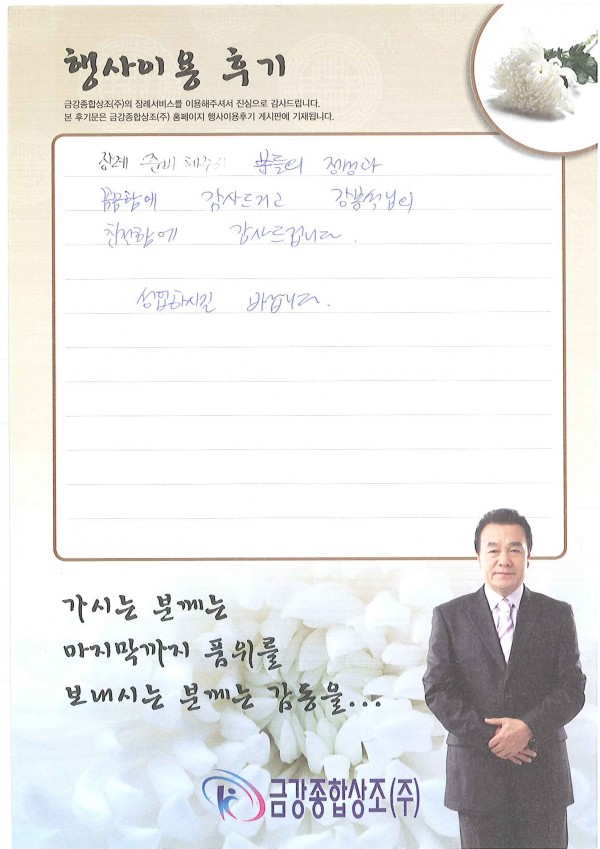 행사이용 후기
금강종합상조(주)의 장례서비스를 이용해주셔서 진심으로 감사드립니다.
본 후기문은 금강종합상조(주) 홈페이지 행사이용후기 게시판에 기재됩니다.
장례 준비 해주신 분들의 정성과
꼼꼼함에 감사드리고 강봉석님의
친절함에 감사드립니다.
성업하시길 바랍니다.
가시는 분께는
마지막까지 품위를
보내시는 분께는 감동을...
금강종합상조(주)